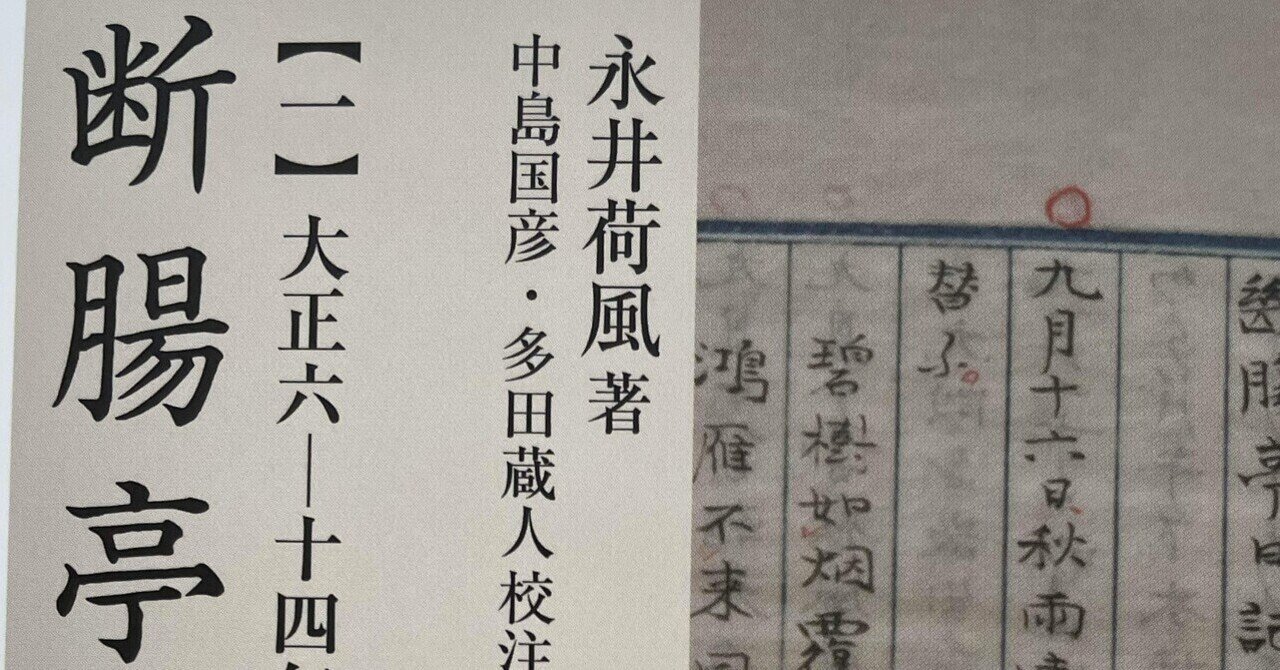 永井荷風 著
中島国彦・多田蔵人校注
【一】大正六―十四
断腸亭
断腸亭日記
九月十六日秋雨
替ふ。
碧樹如烟覆
鴻雁不来